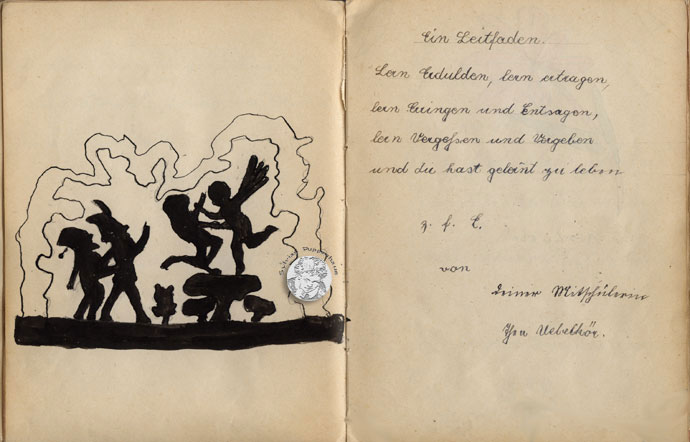 Ein Leitfaden.
Lern Erdulden, lern ertragen,
lern Erringen und Entsagen,
lern Vergeßen und Vergeben
und du hast gelernt zu leben
z. f. E.
von
Deiner Mitschülerin
Uebelhör.